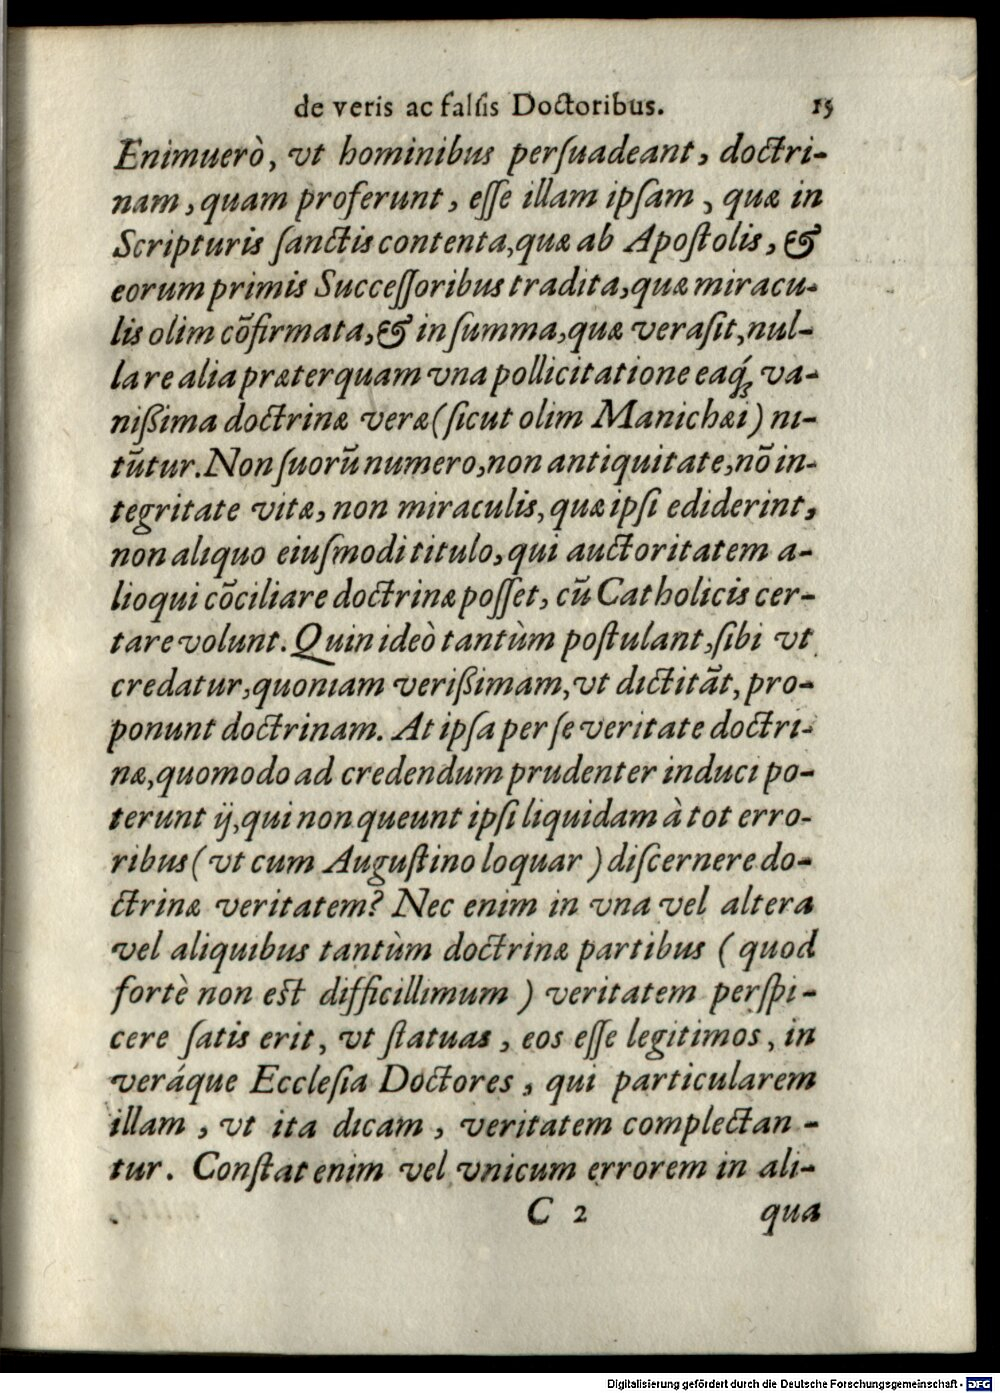 de veris ac falſis Doctoribus. 15
Enimuerò, vt hominibus perſuadeant, doctri-
nam, quam proferunt, eſſe illam ipſam, quæ in
Scripturis ſanctis contenta, quæ ab Apoſtolis, &
eorum primis Succeſſoribus tradita, quæ miracu-
lis olim cõfirmata, & in ſumma, quæ vera ſit, nul-
la re alia præterquam vna pollicitatione eaq́ꝫ va-
nißima doctrinæ veræ (ſicut olim Manichæi) ni-
tũtur. Non ſuorũ numero, non antiquitate, nõ in-
tegritate vitæ, non miraculis, quæ ipſi ediderint,
non aliquo eiuſmodi titulo, qui auctoritatem a-
lioqui cõciliare doctrinæ poſſet, cũ Catholicis cer-
tare volunt. Quin ideò tantùm poſtulant, ſibi vt
credatur, quoniam verißimam, vt dictitãt, pro-
ponunt doctrinam. At ipſa per ſe veritate doctri-
næ, quomodo ad credendum prudenter induci po-
terunt ij, qui non queunt ipſi liquidam à tot erro-
ribus (vt cum Auguſtino loquar) diſcernere do-
ctrinæ veritatem? Nec enim in vna vel altera
vel aliquibus tantùm doctrinæ partibus (quod
fortè non est difficillimum) veritatem perſpi-
cere ſatis erit, vt ſtatuas, eos eſſe legitimos, in
veráque Eccleſia Doctores, qui particularem
illam, vt ita dicam, veritatem complectan-
tur. Conſtat enim vel vnicum errorem in ali-
C 2 qua
Digitalisierung gefördert durch die Deutsche Forschungsgemeinschaft - DFG